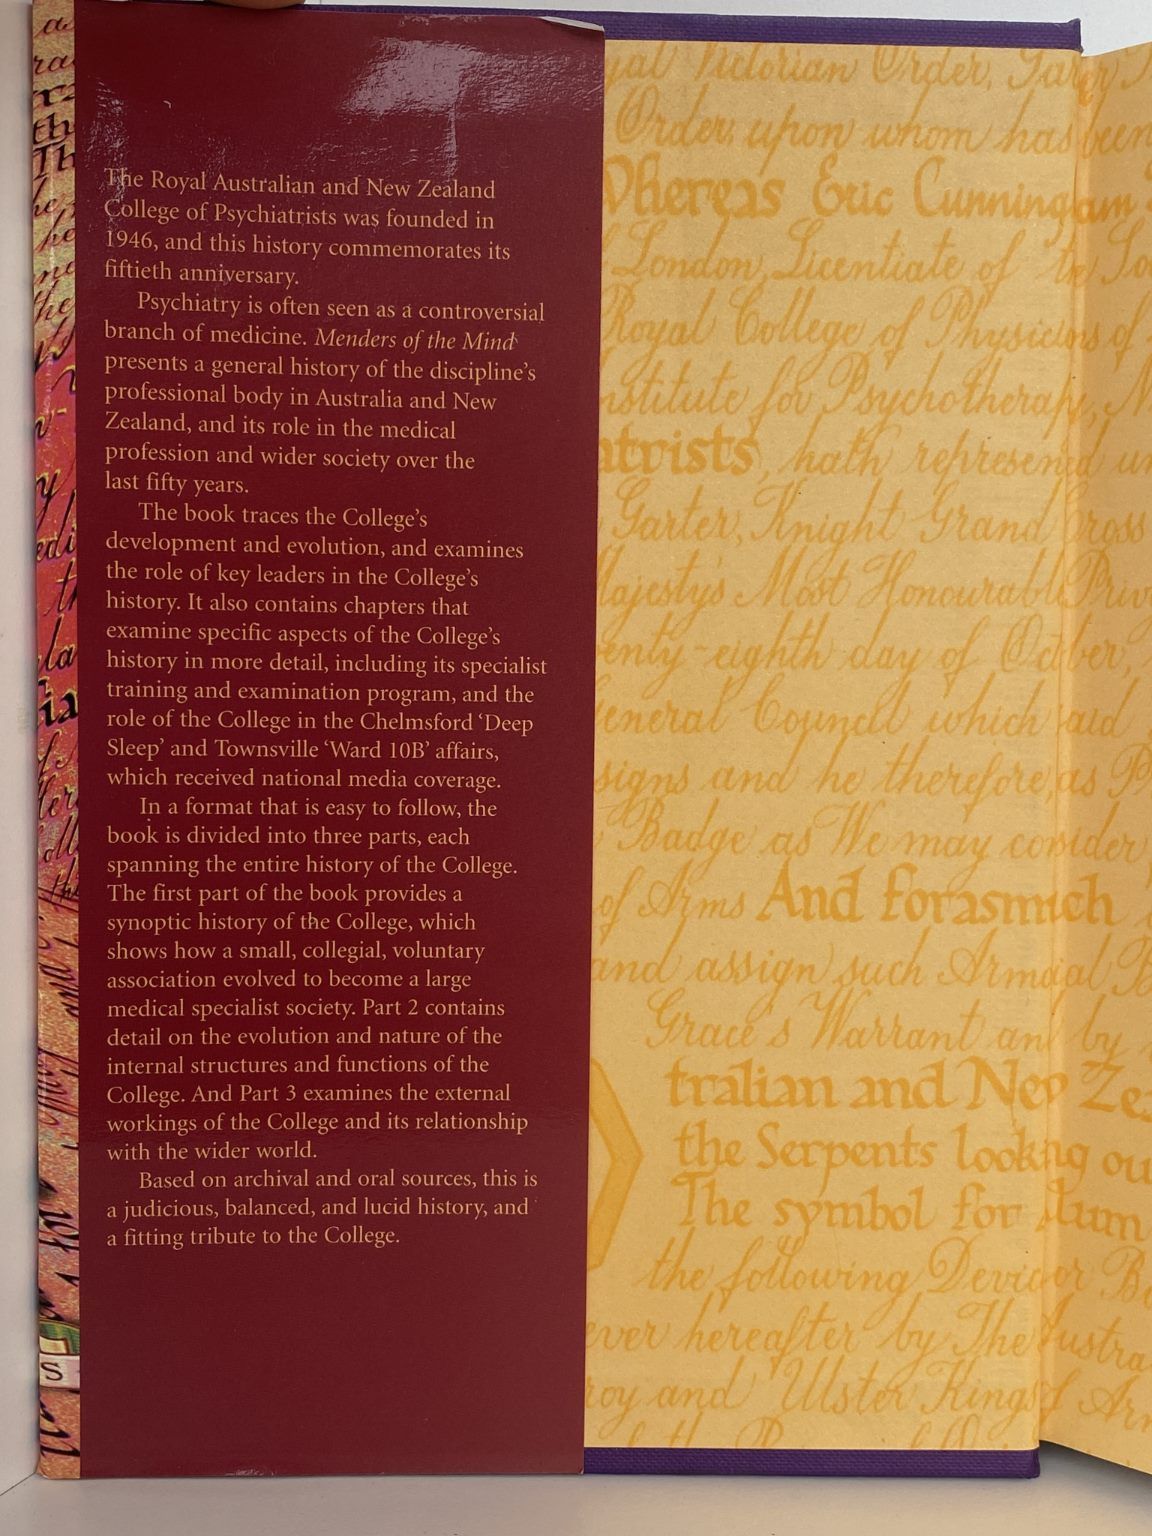 The Royal Australian and New Zealand
College of Psychiatrists was founded in
1946, and this history commemorates its
fiftieth anniversary.
Psychiatry is often seen as a controversial
branch of medicine. Menders of the Mind
presents a general history of the discipline's
professional body in Australia and New
Zealand, and its role in the medical
profession and wider society over the
last fifty years.
The book traces the College's
development and evolution, and examines
the role of key leaders in the College's
history. It also contains chapters that
examine specific aspects of the College's
history in more detail, including its specialist
training and examination program, and the
role of the College in the Chelmsford ‘Deep
Sleep’ and Townsville ‘Ward 10B’ affairs,
which received national media coverage.
In a format that is easy to follow, the
book is divided into three parts, each
spanning the entire history of the College.
The first part of the book provides a
synoptic history of the College, which
shows how a small, collegial, voluntary
association evolved to become a large
medical specialist society. Part 2 contains
detail on the evolution and nature of the
internal structures and functions of the
College. And Part 3 examines the external
workings of the College and its relationship
with the wider world.
Based on archival and oral sources, this is
a judicious, balanced, and lucid history, and
a fitting tribute to the College.
Victorian Order,
Order upon whom has been
Whereas Eric Cunningham
London, Licentiate of
Royal College of Physicians of
Institute for Psychotherapy,
atrists, hath represented
Garter, Knight Grand Cross
Majesty's Most Honourable
enty-eighth day of October,
General Council which
signs and he therefore, as
Badge as We may consider
of Arms And forasmuch
and assign such Armorial
Grace's Warrant and by
tralian and New
the Serpents looking
The symbol for
the following Device
ever hereafter by The
roy and Ulster Kings of
S